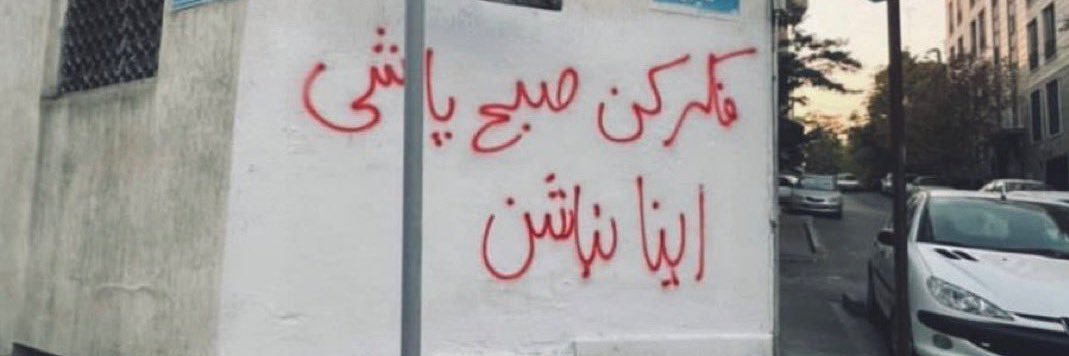 فکر کن صبح پاشی
اینا نباشن